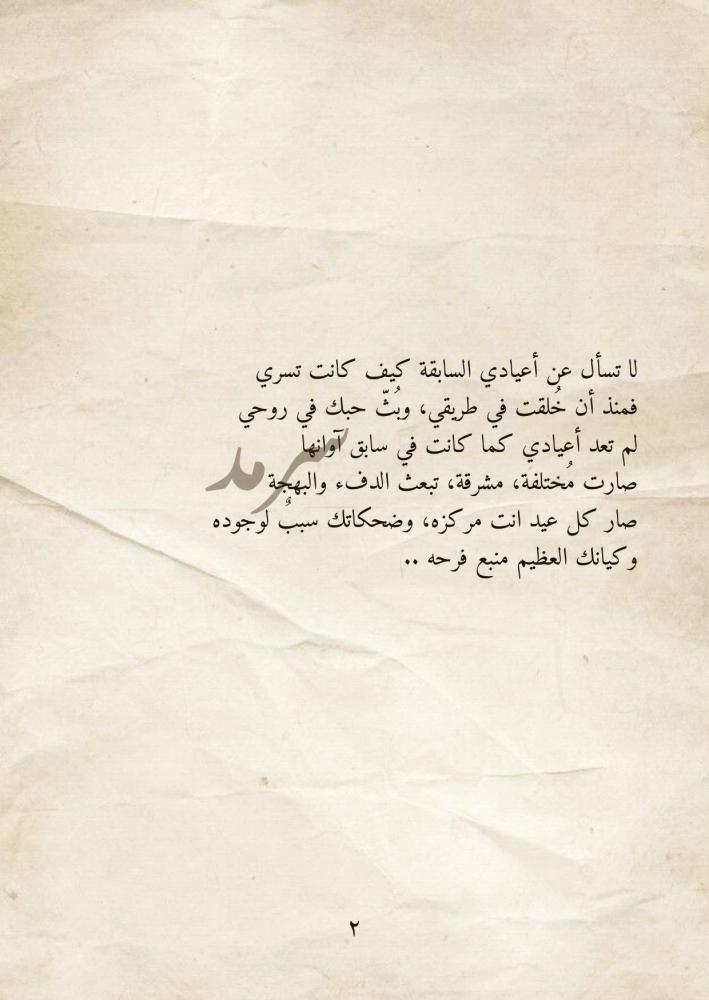 لا تسأل عن أعيادي السابقة كيف كانت تسري
فمنذ أن خُلقت في طريقي، وبُثّ حبك في روحي
لم تعد أعيادي كما كانت في سابق آوانها
سرمد
صارت مُختلفة، مشرقة، تبعث الدفء والبهجة
صار كل عيد انت مركزه، وضحكاتك سببٌ لوجوده
وكيانك العظيم منبع فرحه ..
٢